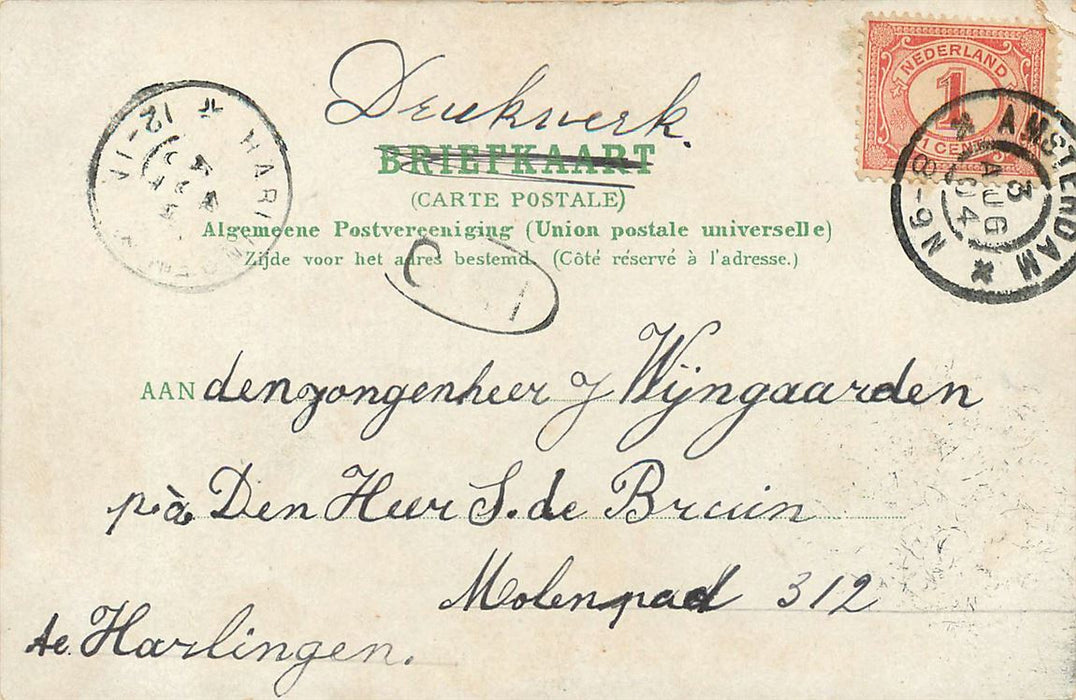 Drukwerk.
BRIEFKAART
(CARTE POSTALE)
Algemeene Postvereeniging (Union postale universelle)
Zijde voor het adres bestemd. (Côté réservé à l'adresse.)
NEDERLAND
1
1 CENT
AMSTERDAM
3 AUG 04
8-9N
HARLINGEN
12-1V
AAN den jongenheer J Wijngaarden
p/a Den Heer S. de Bruin
Molenpad 312
te Harlingen.